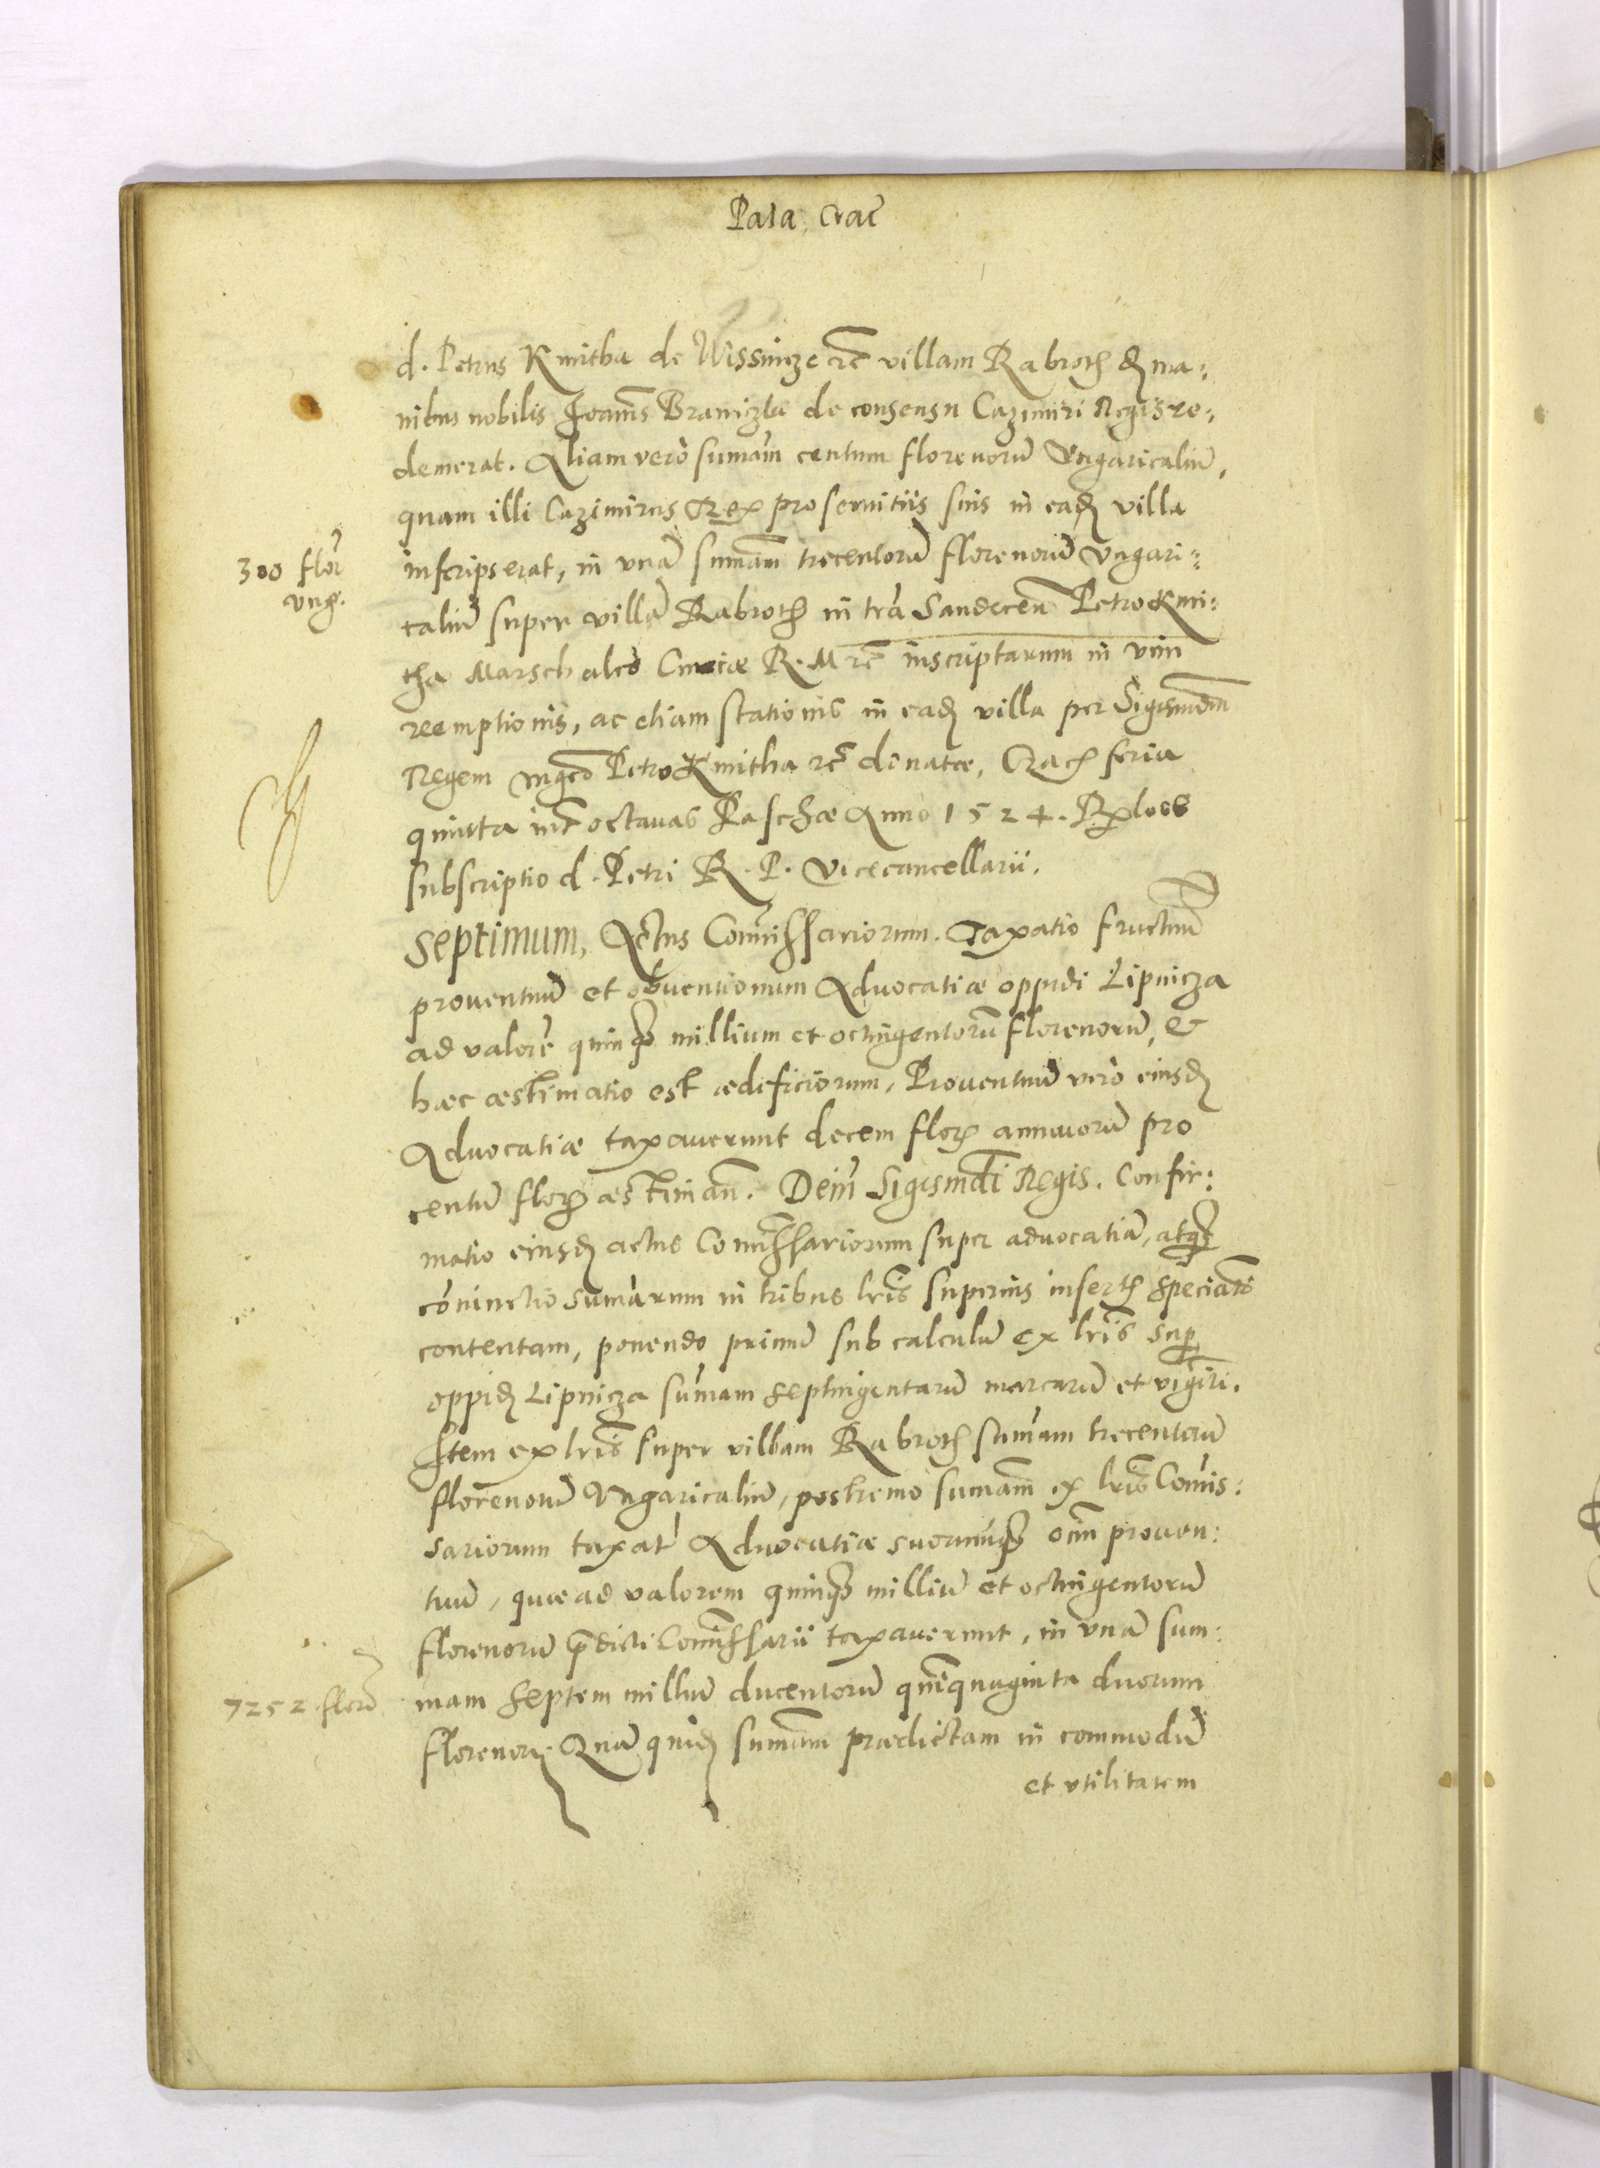 Pala: Crac̄
d. Petrus Kmitha de Wissnicze etc̄ villam Rabroth de ma:
nibus nobilis Ioannis Braniczka de consensu Cazimiri Regis re:
demerat. Aliam vero sum̄am centum florenorū Vngaricaliū,
quam illi Cazimirus Rex pro seruitiis suis in eadē villa
inscripserat, in vnā sum̄am trecentorū florenorū Vngari:
300 flor̄
vng.
caliū super villā Rabroth in tr̄a Sandecen̄ Petro Kmi:
tha Marschalco Curiæ R. M etc̄ inscriptarum in vim
reemptionis, ac etiam stationis in eadē villa per Sigismūdum
Regem mgco Petro Kmitha etc̄ donatæ, Crac̄ feria
quinta int̄ octauas Paschæ Anno 1524.
subscriptio d. Petri R. P. Vicecancellarii.
Septimum, Actus Com̄issariorum. Taxatio fructuū
prouentuū et obuentionum Aduocatiæ oppidi Lipnicza
ad valorē quinq̧ millium et octingentorū florenorū, &
hæc æstimatio est ædificiorum, Prouentuū vero eiusdē
Aduocatiæ taxauerunt decem flor̄ annuorū pro
centū flor̄ æstiman̄. Dein̄ Sigismd̄i Regis. Confir:
matio eiusdē actus Com̄issariorum super aduocatiā, atq̧
cōiunctio sum̄arum in tribus lr̄is superius insert̄ speciat̄
contentam, ponendo primū sub calculū ex lr̄is sup̄
oppidē Lipnicza sum̄am septingentarū marcarū et viginti.
Item ex lr̄is super villam Rabroth sum̄am trecentorū
florenorū Vngaricaliū, postremo sum̄am ex lr̄is Com̄is:
sariorum taxat̄ Aduocatiæ suorumq̧ oīm prouen:
tuū, quæ ad valorem quinq̧ milliū et octingentorū
florenorū p̄dicti Com̄issarii taxauerunt, in vnā sum:
7252 florē
mam septem milliū ducentorū quinquaginta duorum
florenorū. Quā quidē sum̄am prædictam in commodū
et vtilitatem